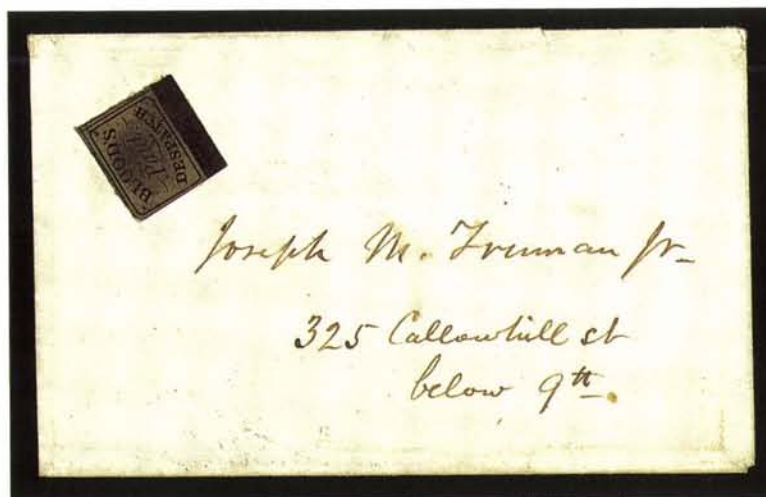 BLOOD'S
Paid
DESPATCH
Joseph M. Truman Jr
325 Callowhill st
below 9th.